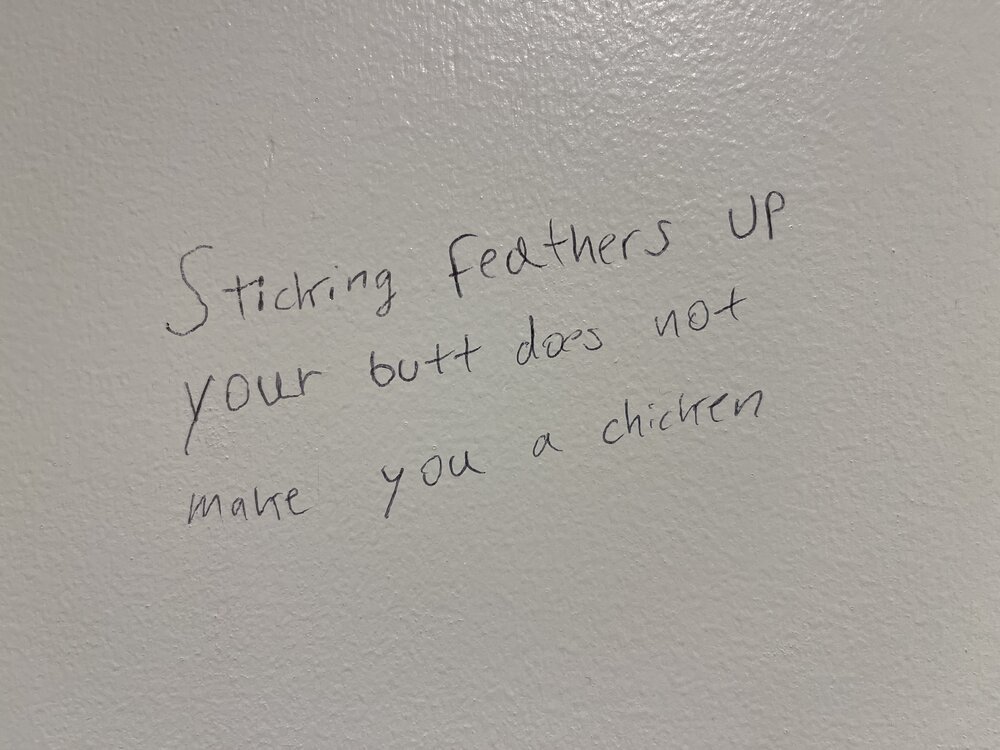 Sticking feathers UP
your butt does not
make you a chicken